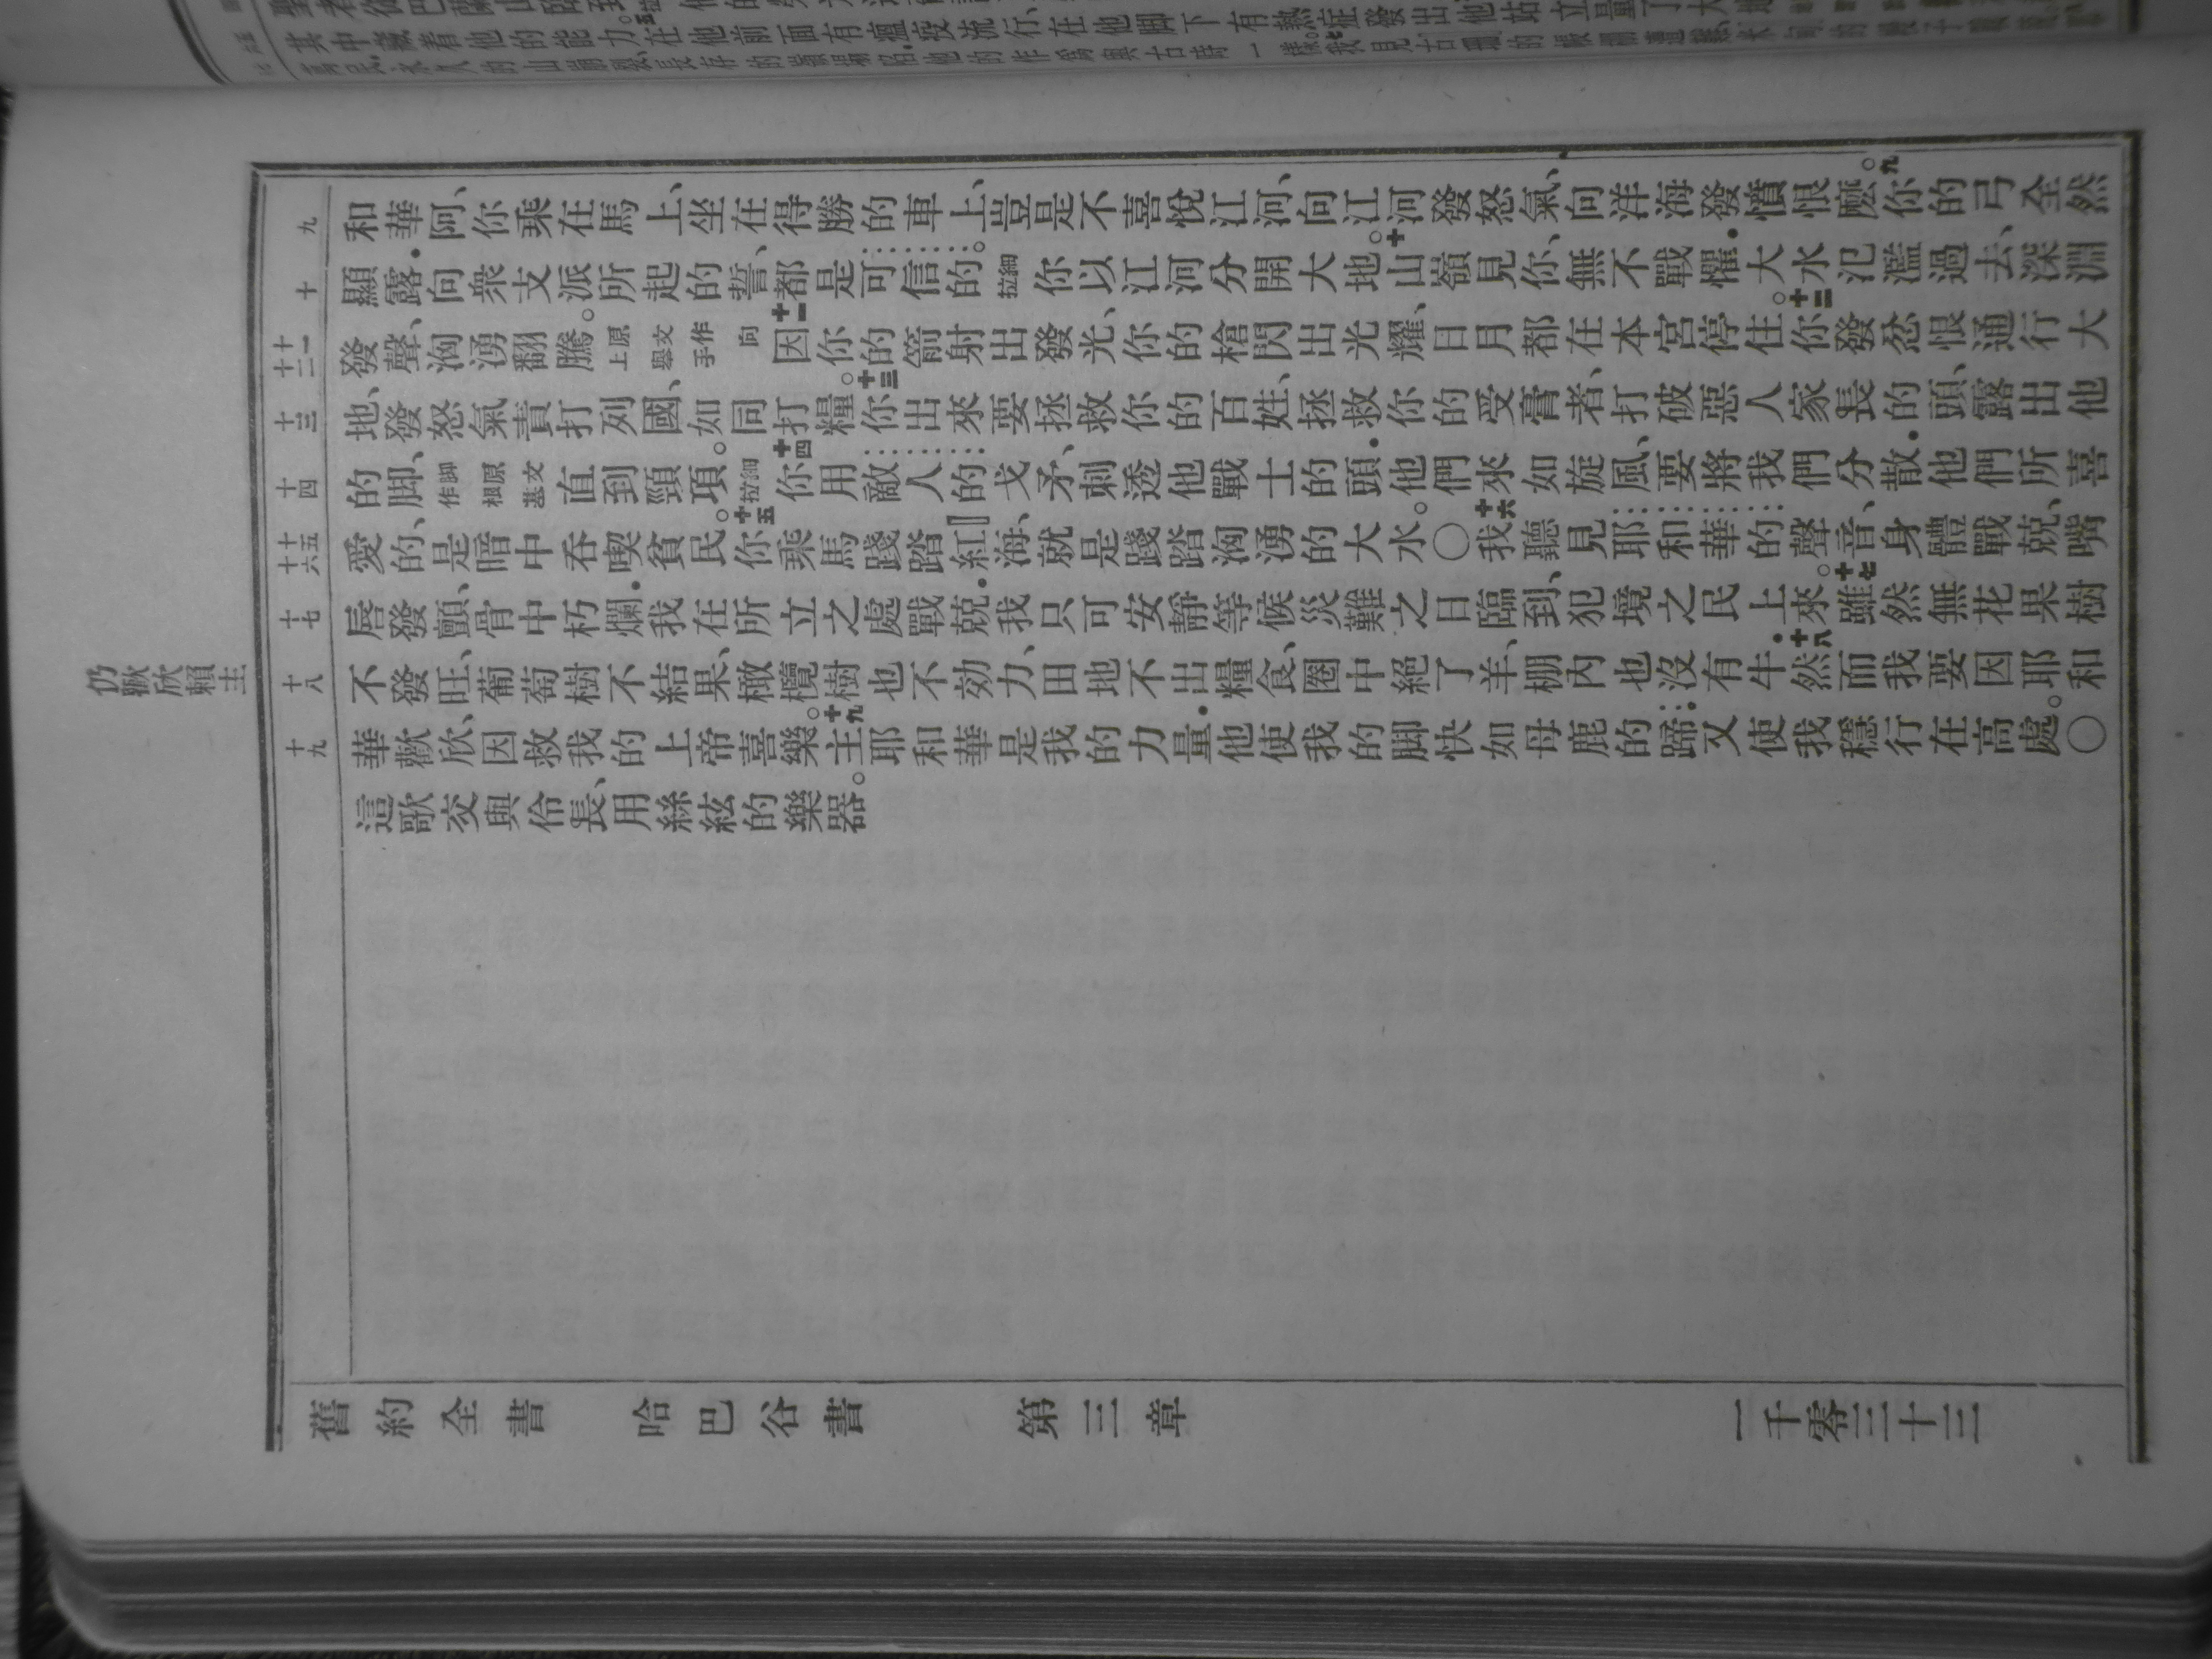 和華阿、你乘在馬上、坐在得勝的車上、豈是不喜悅江河、向江河發怒氣、向洋海發憤恨麽。九你的弓全然
顯露．向衆支派所起的誓、都是可信的。細拉你以江河分開大地。十山嶺見你、無不戰懼．大水氾濫過去、深淵
發聲、洶湧翻騰。原文作向上舉手十一因你的箭射出發光、你的槍閃出光耀、日月都在本宮停住。十二你發忿恨通行大
地、發怒氣責打列國、如同打糧。十三你出來要拯救你的百姓、拯救你的受膏者、打破惡人家長的頭、露出他
的脚、脚原文作根基直到頸項。細拉十四你用敵人的戈矛、刺透他戰士的頭．他們來如旋風、要將我們分散．他們所喜
愛的、是暗中吞喫貧民。十五你乘馬踐踏紅海、就是踐踏洶湧的大水。〇十六我聽見耶和華的聲音、身體戰兢、嘴
唇發顫、骨中朽爛．我在所立之處戰兢．我只可安靜等候災難之日臨到、犯境之民上來。十七雖然無花果樹
不發旺、葡萄樹不結果、橄欖樹也不効力、田地不出糧食、圈中絕了羊、棚內也沒有牛．十八然而我要因耶和
華歡欣、因救我的上帝喜樂。十九主耶和華是我的力量．他使我的脚快如母鹿的蹄．又使我穩行在高處。〇
這歌交與伶長、用絲絃的樂器。
九
十
十一
十二
十三
十四
十五
十六
十七
十八
十九
仍歡欣賴主
舊約全書 哈巴谷書 第三章 一千零三十三